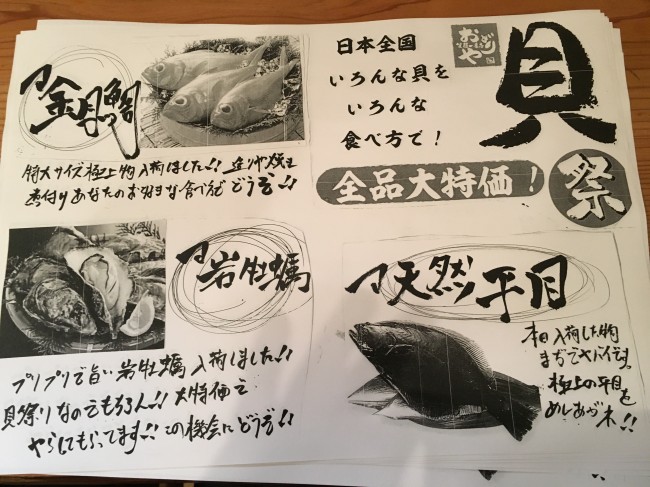 金目鯛
特大サイズ極上物入荷しました!! 塩焼
煮付けあなたのお好きな食べ方でどうぞ!!
おどりや
日本全国
いろんな貝を
いろんな
食べ方で!
貝
祭
全品大特価!
岩牡蠣
プリプリで旨い岩牡蠣入荷しました!!
貝祭りなのでもちろん!! 大特価で
やらしてもらってます!! この機会にどうぞ!!
天然平目
本日入荷した物
まぢでヤバイです。
極上の平目を
めしあがれ!!